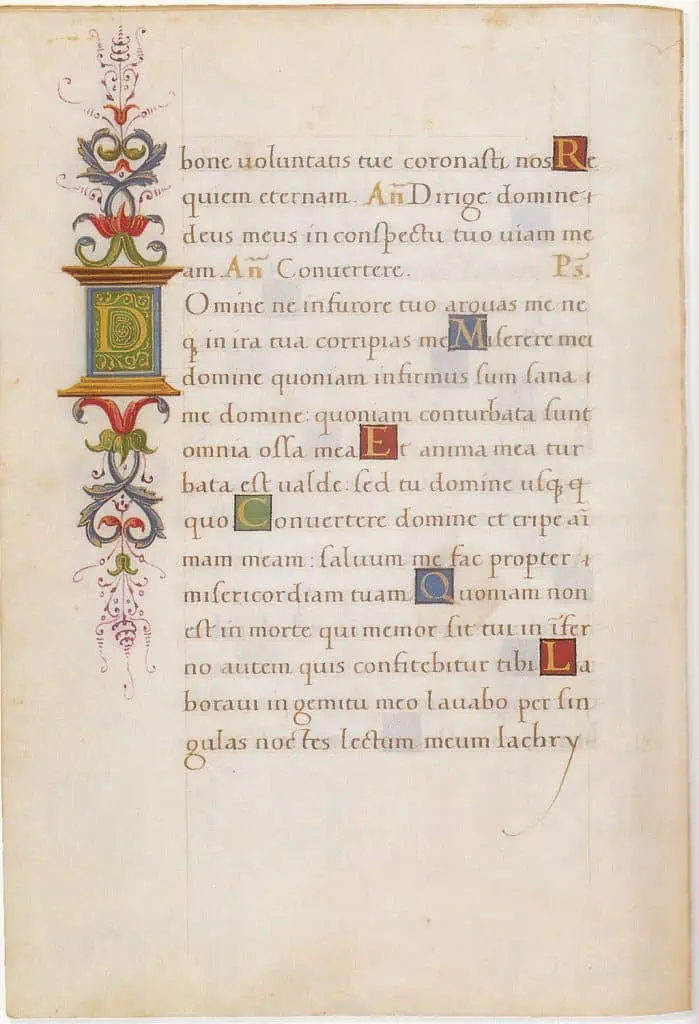 bone uoluntatis tue coronasti nos Re
quiem eternam. An̄ Dirige domine
deus meus in conspectu tuo uiam me
am. An̄ Conuertere. Ps̄.
Domine ne infurore tuo arguas me ne
ꝗ in ira tua corripias me Miserere mei
domine quoniam infirmus sum sana
me domine: quoniam conturbata sunt
omnia ossa mea Et anima mea tur
bata est ualde: sed tu domine usꝗ ꝗ
quo Conuertere domine et eripe aī
mam meam: saluum me fac propter
misericordiam tuam Quoniam non
est in morte qui memor sit tui in īfer
no autem quis confitebitur tibi La
boraui in gemitu meo lauabo per sin
gulas noctes lectum meum lachry